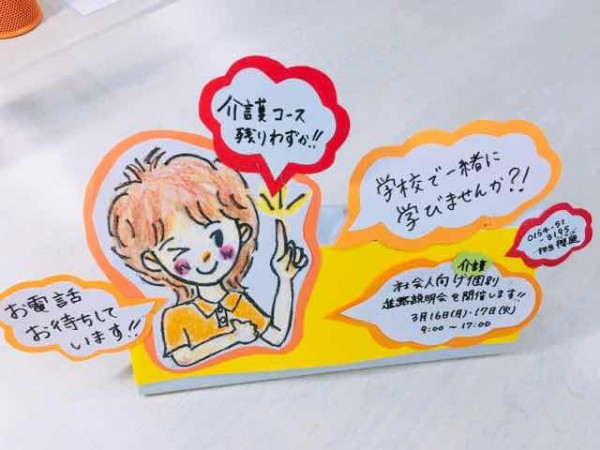 介護コース
残りわずか!!
学校で一緒に
学びませんか?!
0154-51
-3195
担当 櫻庭
介護
社会人向け個別
進路説明会を開催します!!
3月16日(月)・17日(火)
9:00~17:00
お電話
お待ちして
います!!